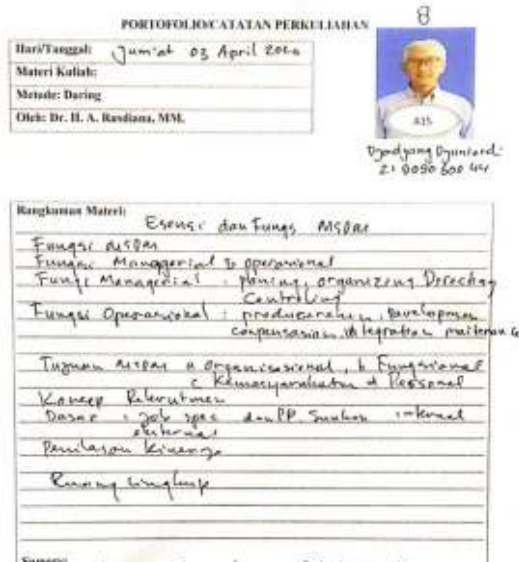 8
PORTOFOLIO/CATATAN PERKULIAHAN
Hari/Tanggal: Jum'at 03 April 2020
Materi Kuliah:
Metode: Daring
Oleh: Dr. H. A. Rusdiana, MM.
A15
Rangkuman Materi:
Esensi dan Fungs MSDM
Fungsi MSDM
Fungsi Managerial & operasional
Fungsi Managerial : planing, organizing Directing
Controling
Fungsi Operasional :
compensasion, integration
Tujuan MSDM a organisasional, b Fungsional
c Kemasyarakatan d Personal
Konsep Rekrutmen
Dasar : job spec dan PP. internal
eksternal
Penilaian Kinerja
Ruang Lingkup